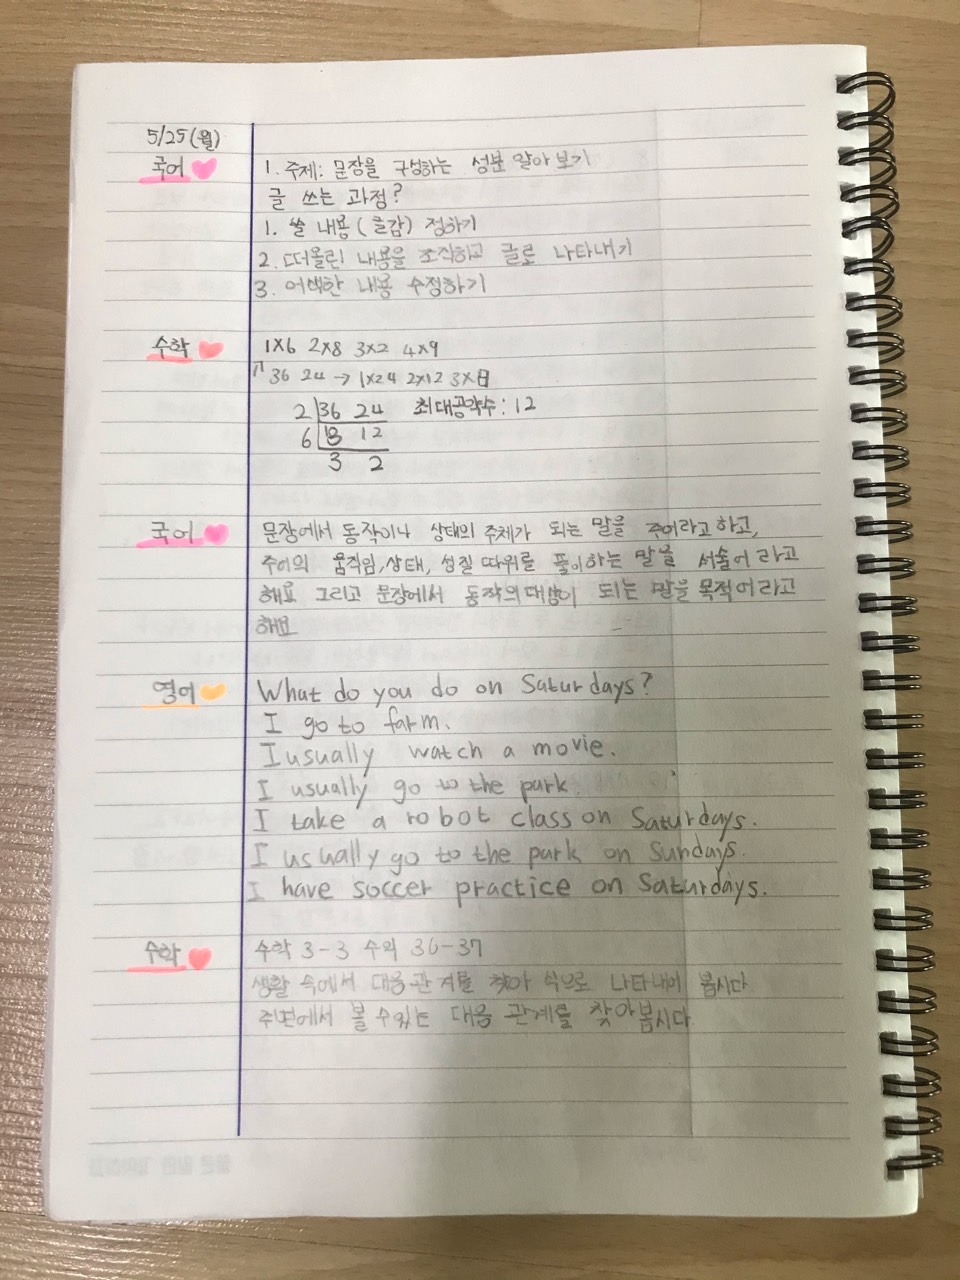 5/25(월)
국어 1. 주제: 문장을 구성하는 성분 알아보기
글 쓰는 과정?
1. 쓸 내용(글감) 정하기
2. 떠올린 내용을 조직하고 글로 나타내기
3. 어색한 내용 수정하기
수학 1×6 2×8 3×2 4×9
36 24 → 1×24 2×12 3×8
2 36 24 최대공약수: 12
6 18 12
3 2
국어 문장에서 동작이나 상태의 주체가 되는 말을 주어라고 하고,
주어의 움직임, 상태, 성질 따위를 풀이하는 말을 서술어라고
해요 그리고 문장에서 동작의 대상이 되는 말을 목적어라고
해요
영어 What do you do on Saturdays?
I go to farm.
I usually watch a movie.
I usually go to the park.
I take a robot class on Saturdays.
I ususally go to the park on Sundays.
I have soccer practice on Saturdays.
수학 수학 3-3 수익 36-37
생활 속에서 대응관계를 찾아 식으로 나타내어 봅시다
주변에서 볼 수있는 대응 관계를 찾아봅시다